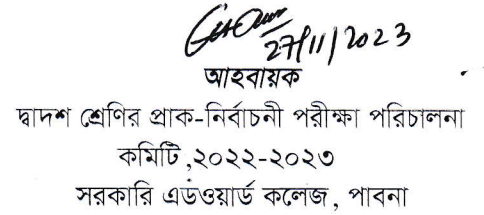 27/11/2023
আহবায়ক
দ্বাদশ শ্রেণির প্রাক-নির্বাচনী পরীক্ষা পরিচালনা
কমিটি ,২০২২-২০২৩
সরকারি এডওয়ার্ড কলেজ , পাবনা